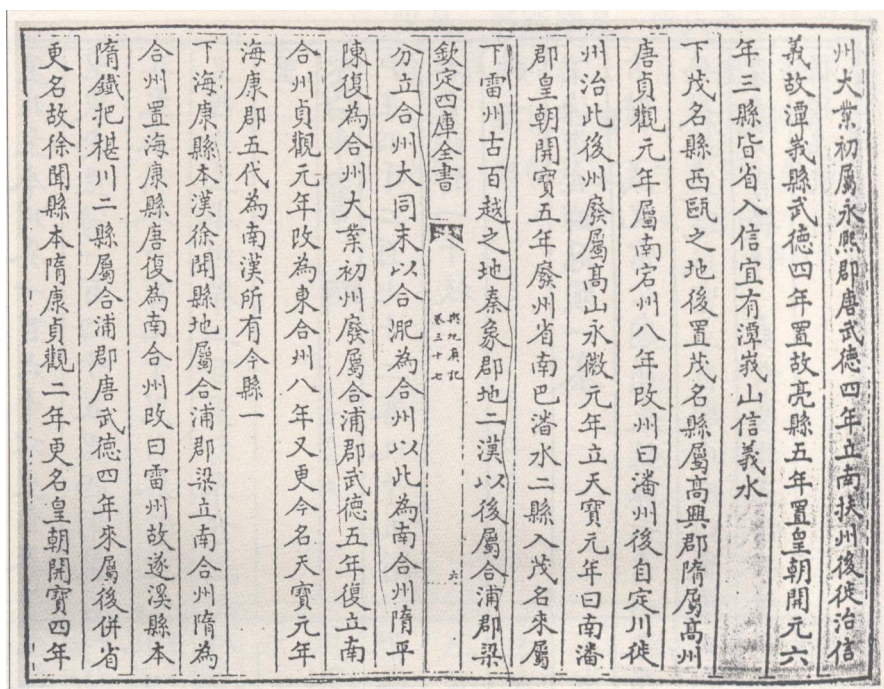 州大業初屬永熙郡唐武德四年立南扶州後徙治信
義故潭峩縣武德四年置故亮縣五年置皇朝開元六
年三縣皆省入信宜有潭峩山信義水
下茂名縣西甌之地後置茂名縣屬髙興郡隋屬髙州
唐貞觀元年屬南宕州八年改州曰潘州後自定川徙
州治此後州廢屬髙山永徽元年立天寳元年曰南潘
郡皇朝開寳五年廢州省南巴潘水二縣入茂名來屬
下雷州古百越之地秦象郡地二漢以後屬合浦郡梁
欽定四庫全書
輿地廣記
卷三十七
六
分立合州大同末以合淝為合州以此為南合州隋平
陳復為合州大業初州廢屬合浦郡武德五年復立南
合州貞觀元年改為東合州八年又更今名天寳元年
海康郡五代為南漢所有今縣一
下海康縣本漢徐聞縣地屬合浦郡梁立南合州隋為
合州置海康縣唐復為南合州改曰雷州故遂溪縣本
隋鐵把椹川二縣屬合浦郡唐武德四年來屬後併省
更名故徐聞縣本隋康貞觀二年更名皇朝開寳四年